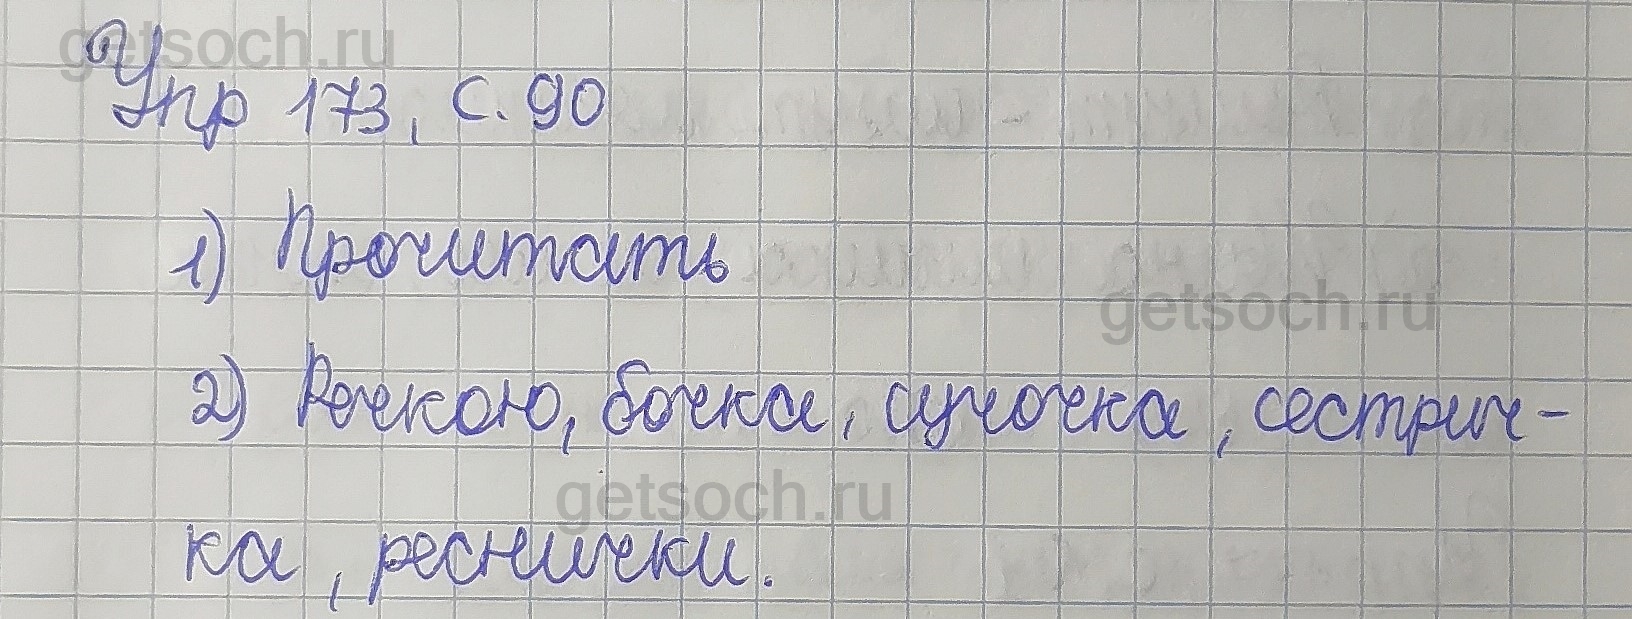 getsoch.ru
Упр 173, с. 90
1) Прочитать
getsoch.ru
2) Речкою, бочка, сучочка, сестрич-
getsoch.ru
ка, реснички.